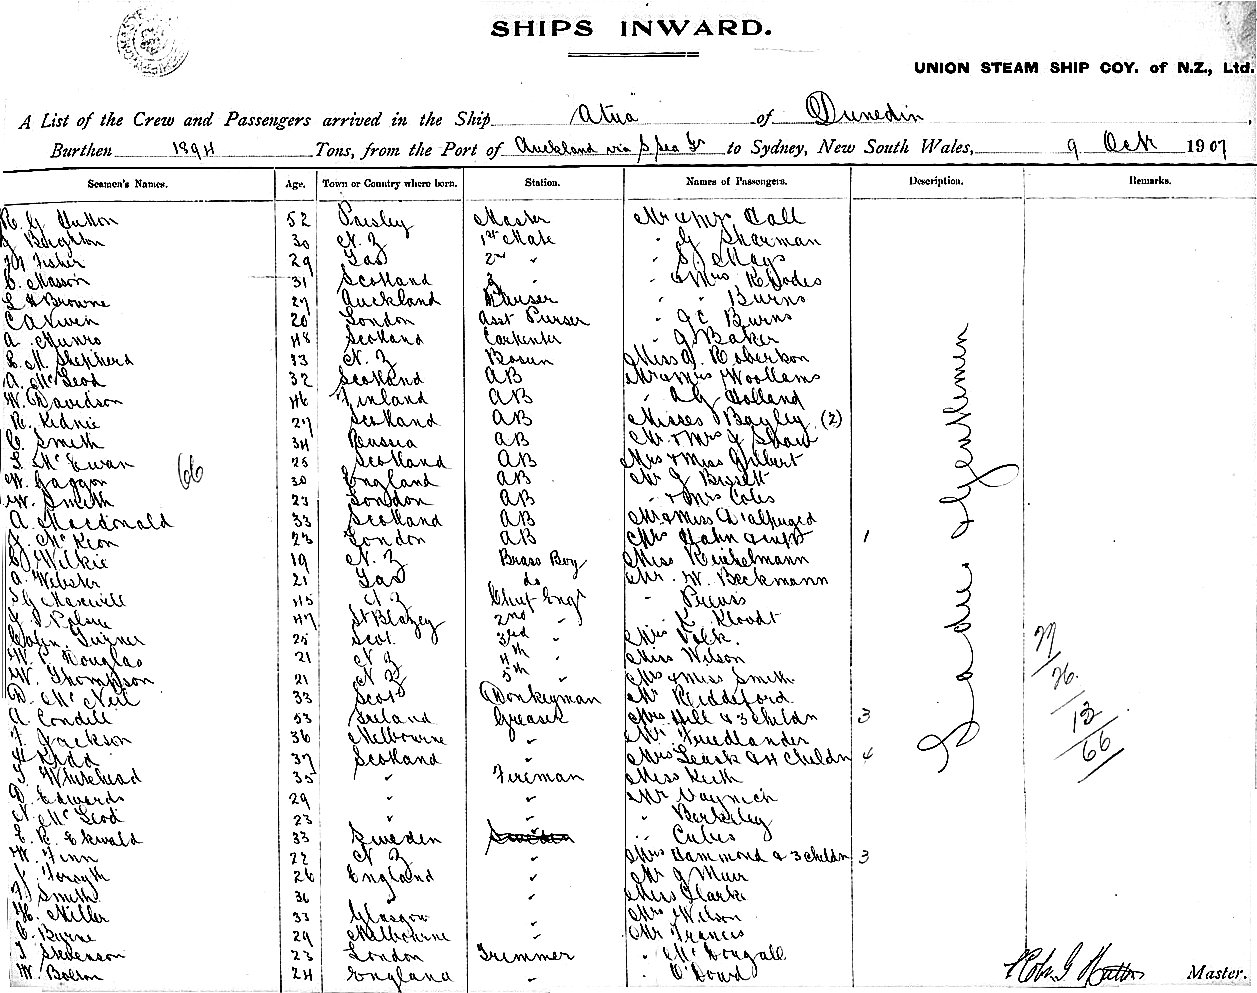 SHIPS INWARD.
UNION STEAM SHIP COY. of N.Z., Ltd.
A List of the Crew and Passengers arrived in the Ship Atua of Dunedin,
Burthen 1894 Tons, from the Port of Auckland via S Sea Is to Sydney, New South Wales, 9 Oct 1907
Seamen's Names. Age. Town or Country where born. Station. Names of Passengers. Description. Remarks.
R. G Hutton 52 Paisley Master Mr & Mrs Call
30 N. Z 1st Mate " G Sharman
Fisher 29 Tas 2nd " " S. Mays
C. Masson 31 Scotland 3 " " & Mrs Rhodes
Browne 27 Auckland Purser " " Burns
20 London Asst Purser " G C Burns
A. Munro 48 Scotland Carpenter " G Baker
E. M. Shepherd 33 N. Z Bosun Miss J. Roberton
A. McLeod 32 Scotland AB Mr & Mrs Woollams
W. Davidson 46 Finland AB " Holland
R. Kidnie 27 Scotland AB Misses Bayley (2)
C. Smith 34 Russia AB Mr & Mrs J Shaw
McEwan 25 Scotland AB Mrs & Miss Gilbert
66
W. Gaggon 30 England AB Mr J Bissett
W. Smith 23 London AB " & Mrs Coles
A. Macdonald 33 Scotland AB Mr & Miss
J. McKeon 23 London AB Mrs Hahn & inft 1
Wilkie 19 N. Z Brass Boy Miss
A. Webster 21 Tas do Mr. W. Beckmann
Maxwell 45 N Z Chief Engr "
47 St Blazey 2nd " " K. Kloodt
Colin Turner 25 Scot 3rd " Mrs Volk.
W. Douglas 21 N Z 4th " Miss Wilson
W. Thompson 21 N Z 5th " Mrs & Miss Smith
D. McNeil 33 Scot Donkeyman Mr Riddiford
A. Condill 53 Ireland Greaser Mrs Hill & 3 childn 3
F. Jackson 36 Melbourne " Mr Friedlander
Kidd 37 Scotland " Mrs Leask & 4 Childn 4
T Whitehead 35 " Fireman Miss Keith
D. Edwards 29 " " Mr
N. McLeod 23 " " " Berkeley
E. R. Ekwald 33 Sweden "
W. Finn 22 N Z " Mrs Hammond & 3 childn 3
J. Forsyth 26 England " Mr J Muir
J Smith 36 " " Miss Clarke
H. Miller 33 Glasgow " Mrs Wilson
C. Byrne 29 Melbourne " Mr Francis
T Stevenson 23 London Trimmer " McDougall
W. Bolton 24 England " " O'Dowd
Ladies & Gentlemen
27
26
13
66
Robt G Hutton Master.